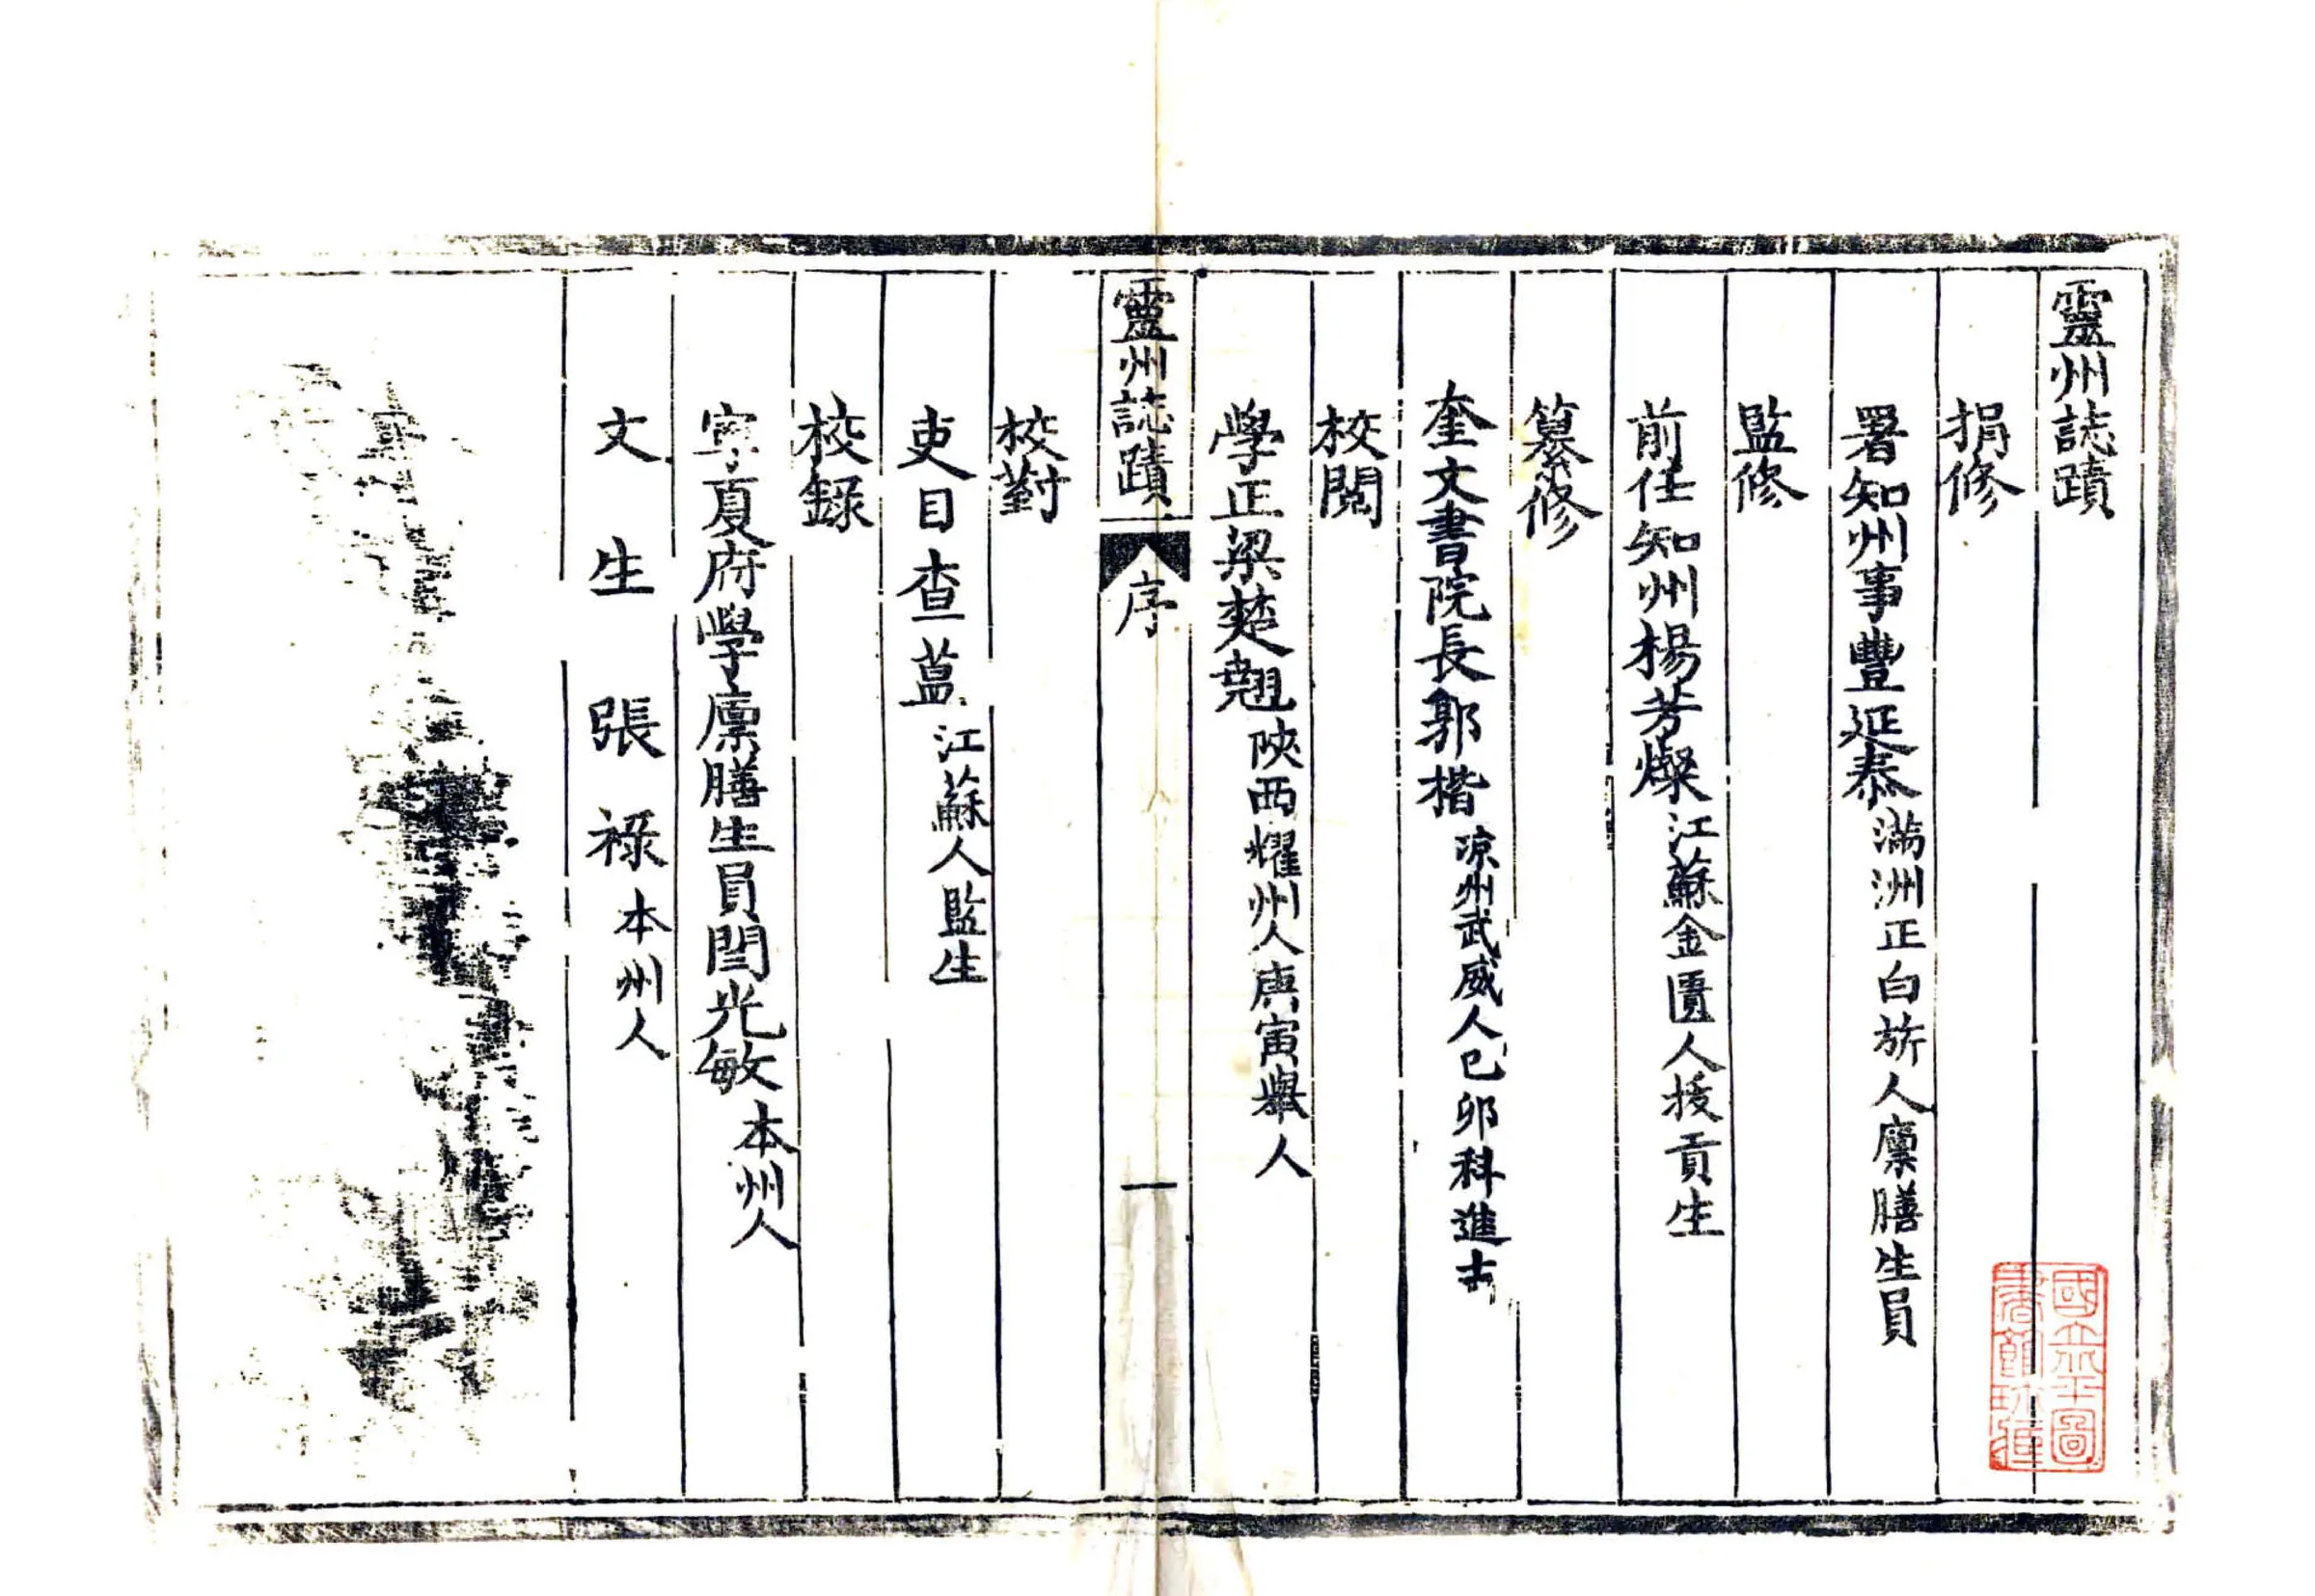 靈州誌蹟
捐修
署知州事豐延泰滿洲正白旂人廩膳生員
監修
前任知州楊芳燦江蘇金匱人拔貢生
纂修
奎文書院長郭楷涼州武威人己卯科進士
校閱
學正梁楚翹陝西耀州人庚寅舉人
靈州誌蹟 序 一
校對
吏目查菖江蘇人監生
校錄
寧夏府學廩膳生員閆光敏本州人
文生張祿本州人
國立北平圖書館珍藏